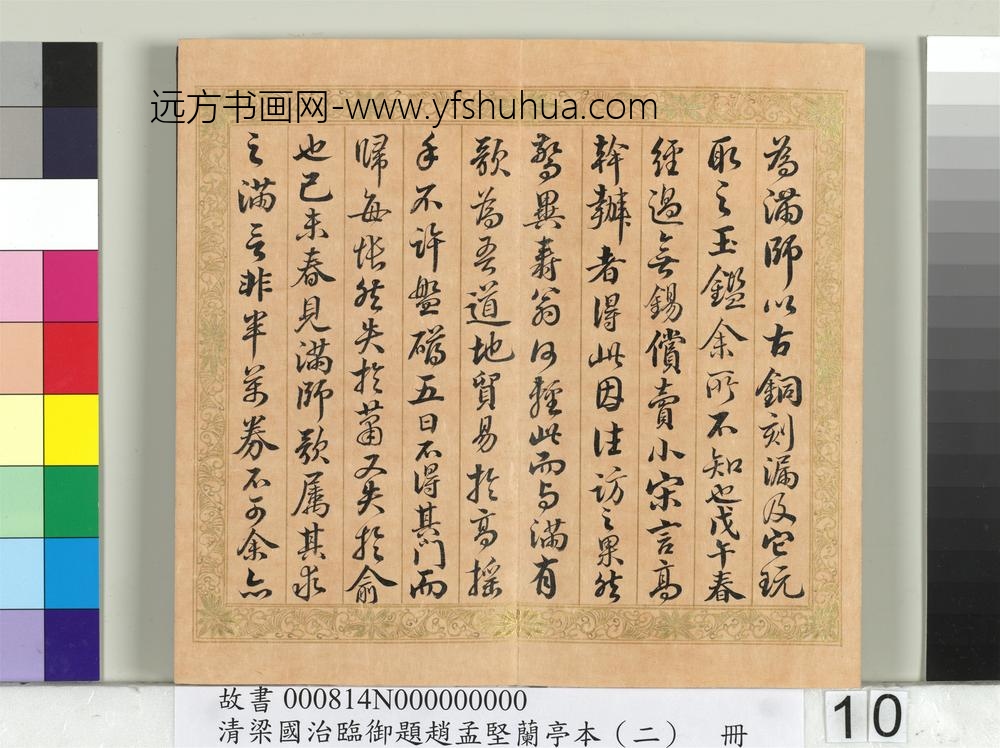 远方书画网-www.yfshuhua.com
為滿師以古銅刻漏及它玩
取之玉鑑余所不知也戊午春
經過無錫償賣小宋言高
幹辦者得此因往訪之果然
驚異壽翁何輕此而与滿有
歎為吾道地貿易於高搖
手不許盤礴五日不得其門而
歸每悵然失於蕭又失於俞
也己未春見滿師歎属其求
之滿言非半萬券不可余亦
故書 000814N000000000
清梁國治臨御題趙孟堅蘭亭本（二） 冊
10